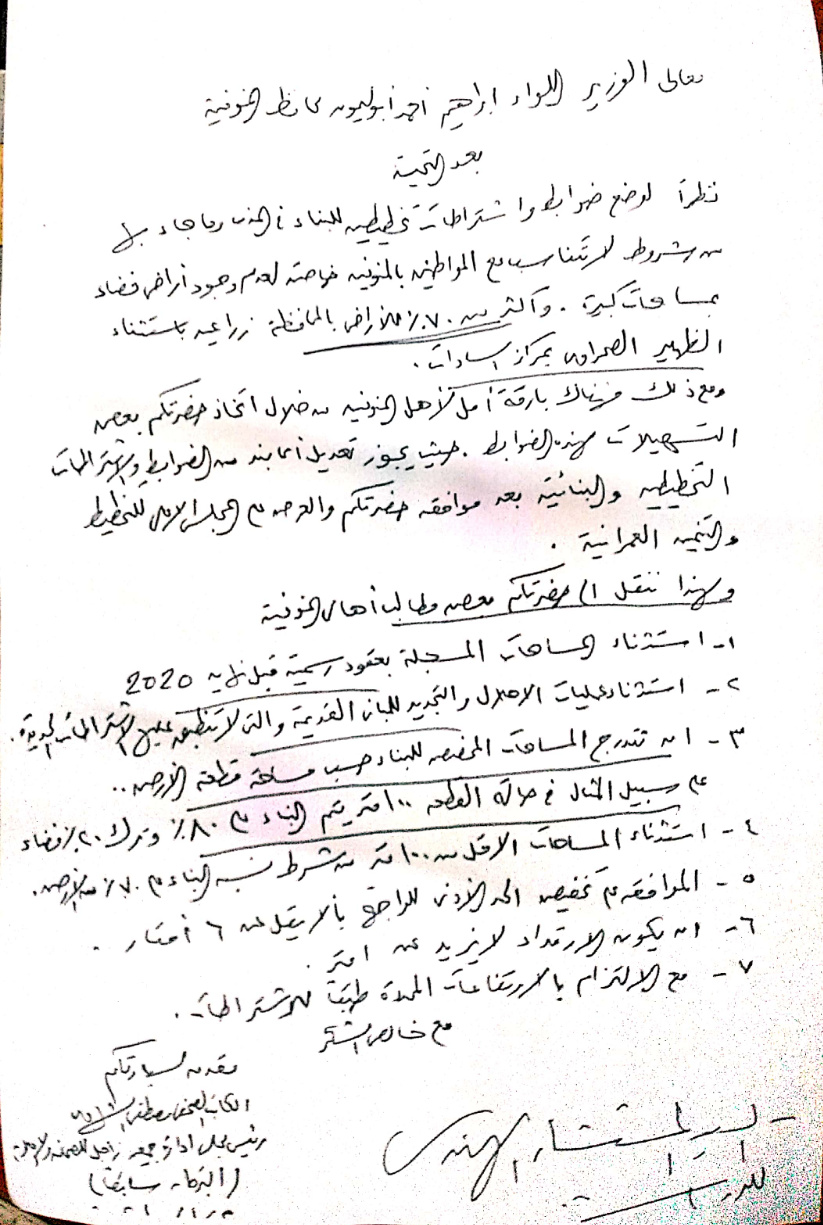 معالى الوزير اللواء ابراهيم أحمد أبوليمون محافظ المنوفية
بعد التحية
نظراً لوضع ضوابط واشتراطات تخطيطيه للبناء فى المدن وما جاء بها
من شروط لا تتناسب مع المواطنين بالمنوفيه خاصته لعدم وجود أراضى فضاء
بمساحات كبيرة . وأكثر من ٧٠٪ من الأراضى بالمحافظة زراعيه باستثناء
الظهير الصحراوى بمركز السادات .
ومع ذلك فهناك بارقة أمل لأهل المنوفيه من خلال اتخاذ حضرتكم بعض
التسهيلات لهذه الضوابط . حيث يجوز تعديل أى بند من الضوابط والاشتراطات
التخطيطيه والبنائية بعد موافقه حضرتكم والعرض على المجلس الاعلى للتخطيط
والتنميه العمرانية .
ولهذا ننقل الى حضرتكم بعض مطالب أهالى المنوفية
١- استثناء المساحات المسجلة بعقود رسمية قبل نهايه 2020
٢- استثناء عمليات الاحلال والتجديد للمبانى القديمة والتى لا تنطبق عليها الاشتراطات الجديدة .
٣- ان تتدرج المساحات المخصصه للبناء حسب مساحة قطعة الأرض ..
على سبيل المثال فى حالة القطعه ١٠٠ متر يتم البناء على ٨٠٪ وترك ٢٠٪ فضاء
٤- استثناء المساحات الاقل من ١٠٠ متر من شرط نسبه البناء على ٧٠٪ من الأرض .
٥- الموافقه على تخفيض الحد الأدنى للواجهة بألا يقل عن ٦ أمتار .
٦- ان يكون الارتداد لا يزيد عن ١ متر .
٧- مع الالتزام بالارتفاعات المحددة طبقاً للاشتراطات .
مع خالص الشكر
مقدمه لسيادتكم
الكاتب الصحفى مصطفى
رئيس مجلس ادارة جمعيه
سابقاً)
- السيد المستشار الهندسى
للدراسة